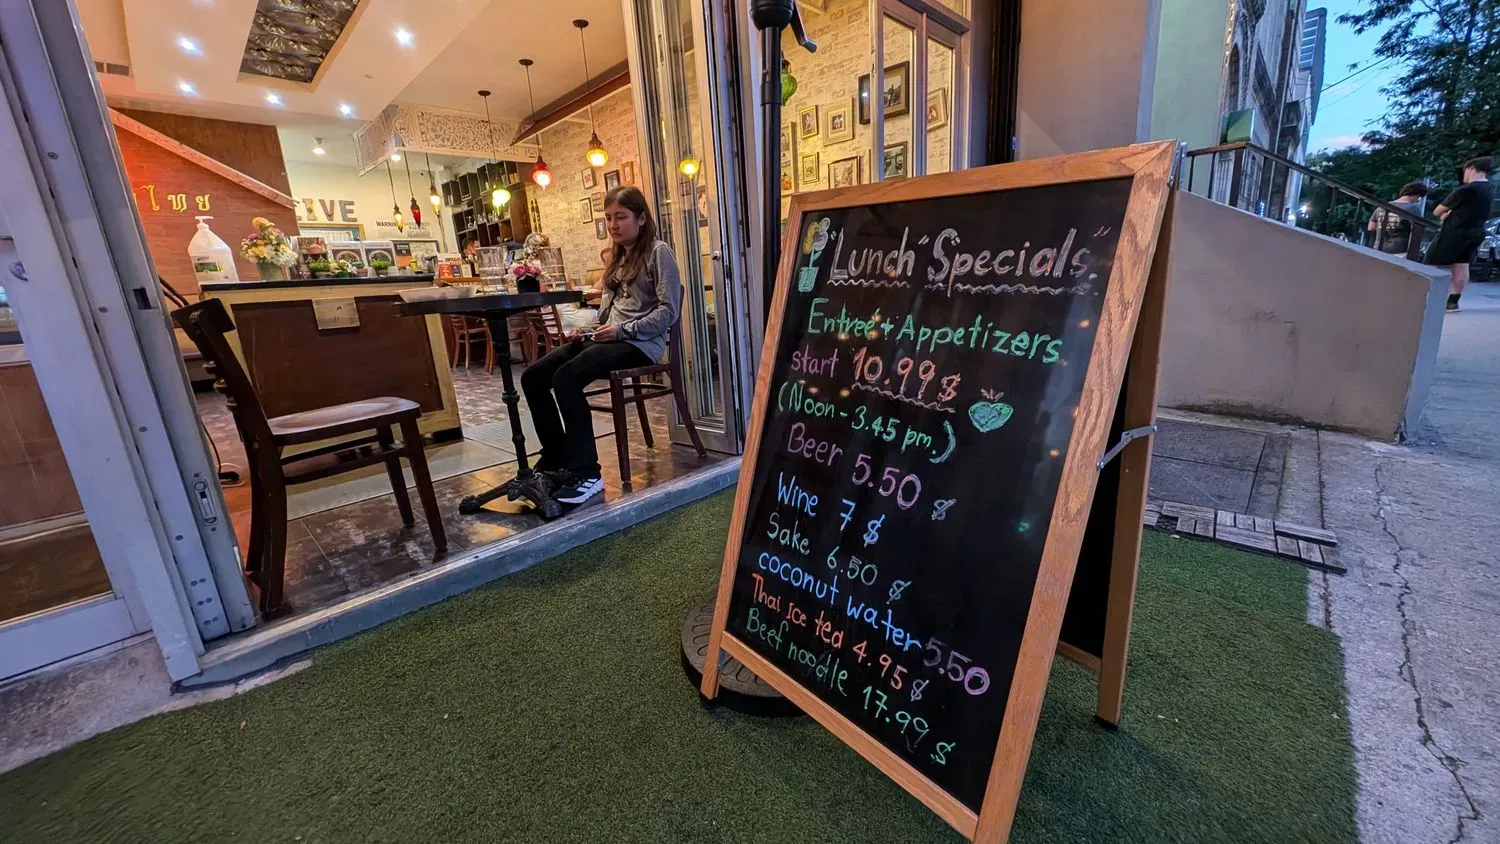 ไทย
IVE
"Lunch" "Specials."
Entree + Appetizers
start 10.99$
(Noon - 3.45 pm.)
Beer 5.50 $
Wine 7 $
Sake 6.50 $
coconut water 5.50
Thai Ice tea 4.95 $
Beef noodle 17.99 $